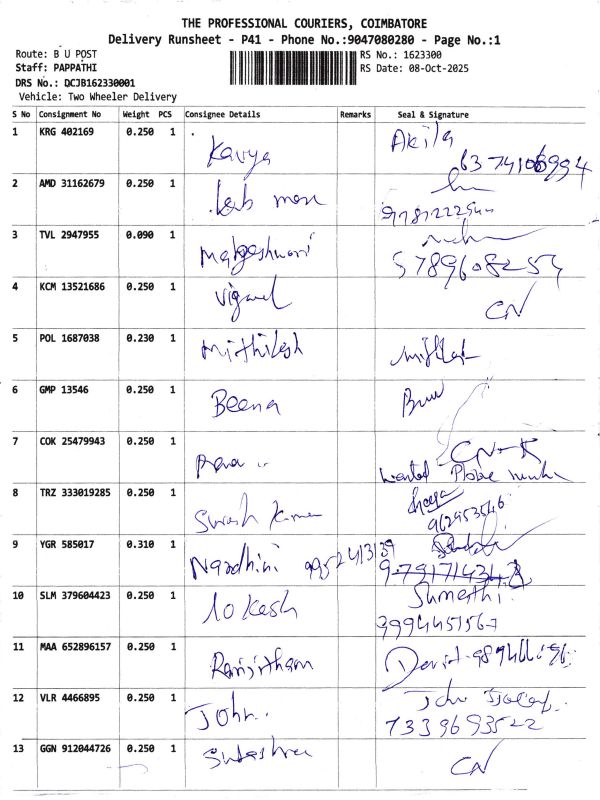 THE PROFESSIONAL COURIERS, COIMBATORE
Delivery Runsheet - P41 - Phone No.:9047080280 - Page No.:1
Route: B U POST
RS No.: 1623300
Staff: PAPPATHI
RS Date: 08-Oct-2025
DRS No.: DCJB162330001
Vehicle: Two Wheeler Delivery
S No Consignment No Weight PCS Consignee Details Remarks Seal & Signature
1 KRG 402169 0.250 1 Kavya Akila
2 AMD 31162679 0.250 1
3 TVL 2947955 0.090 1 Mageshwari
5789608257
4 KCM 13521686 0.250 1 CN
5 POL 1687038 0.230 1 Mithilesh
6 GMP 13546 0.250 1 Beena
7 COK 25479943 0.250 1
wanted
8 TRZ 333019285 0.250 1 Suresh Kumar
962953546
9 YGR 585017 0.310 1 Nandhini 9952413139
10 SLM 379604423 0.250 1 lokesh Sumathi
3994451567
11 MAA 652896157 0.250 1 Ranjitham David
12 VLR 4466895 0.250 1 John John
7339693522
13 GGN 912044726 0.250 1 CN